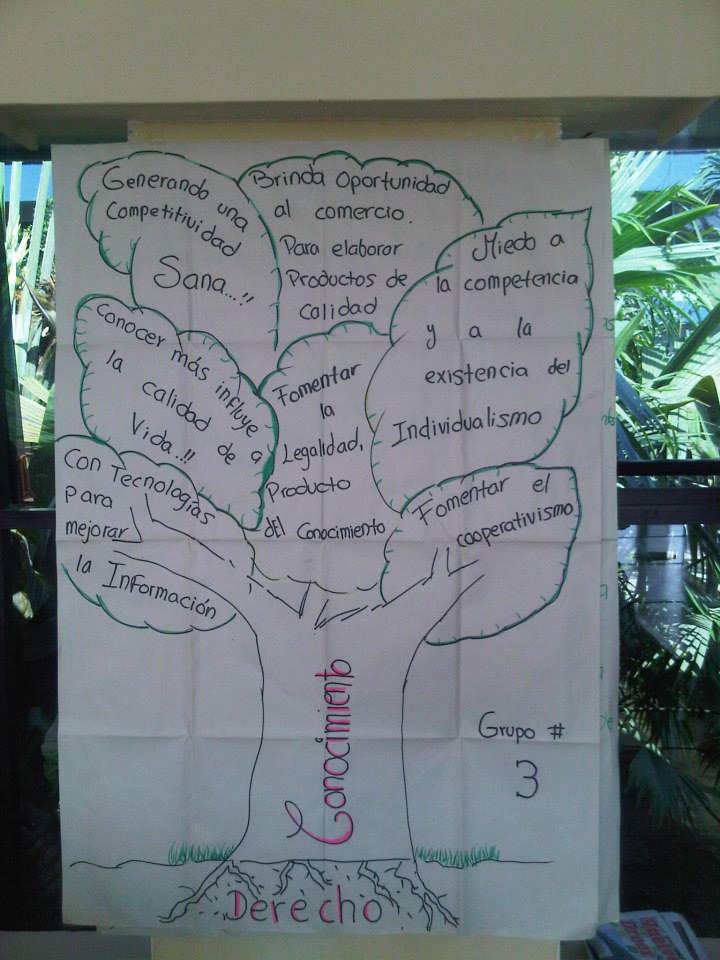 Generando una
Competitividad
Sana...!!
Brinda Oportunidad
al comercio.
Para elaborar
Productos de
calidad
Miedo a
la competencia
y a la
existencia del
Individualismo
Conocer más influye a
la calidad de
Vida..!!
Fomentar
la
Legalidad,
Producto
del Conocimiento
Con Tecnologías
para
mejorar
la Información
Fomentar el
cooperativismo
Conocimiento
Grupo #
3
Derecho